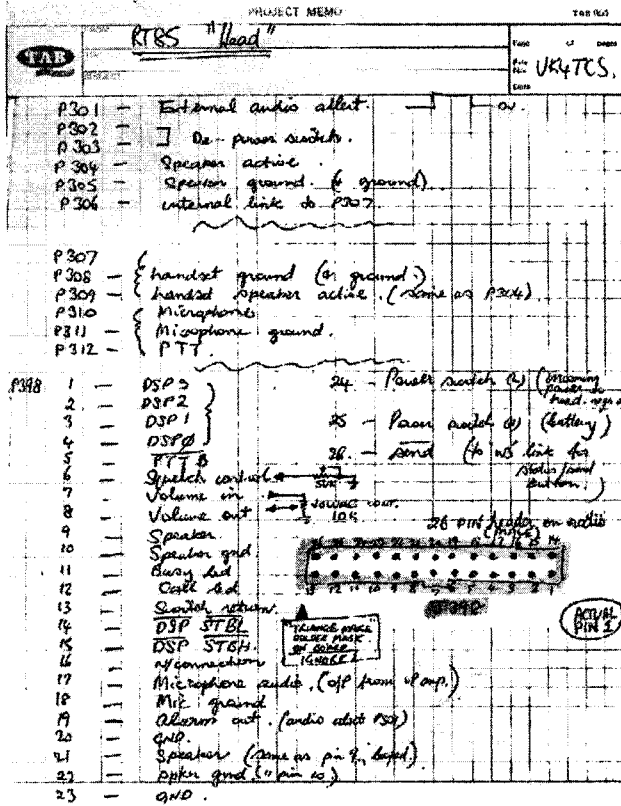 PROJECT MEMO
TAB
RTBS "Head"
VK4TCS.
P301 - External audio alert. 0v.
P302 -
P303 - ] De-power switch.
P304 - Speaker active.
P305 - Speaker ground. (& ground)
P306 - internal link to P307.
P307
P308 - handset ground (or ground.)
P309 - handset speaker active. (same as P304)
P310 - Microphone
P311 - Microphone ground.
P312 - PTT.
P398 1 - DSP 3
2 - DSP 2
3 - DSP 1
4 - DSP Ø
5 - PTT B
6 - Squelch control
7 - Volume in
8 - Volume out
VOLUME CONT.
10K
9 - Speaker
10 - Speaker gnd
11 - Busy led
12 - Call led
13 - Switch return
14 - DSP STBL
15 - DSP STBH.
16 - n/connection
17 - Microphone audio. (o/p from amp.)
18 - Mic ground
19 - Alarm out. (audio alert P301)
20 - GND.
21 - Speaker (same as pin 9)
22 - spkr gnd. (" pin 10)
23 - GND.
24 - Power switch (incoming power
25 - Power switch (battery)
26 - Send (to link for
button.)
26 PIN header on radio
(MALE)
26 25 24 23 22 21 20 19 18 17 16 15 14
13 12 11 10 9 8 7 6 5 4 3 2 1
P398
TRIANGLE
SOLDER MASK
ON BOARD
IGNORE!
ACTUAL
PIN 1